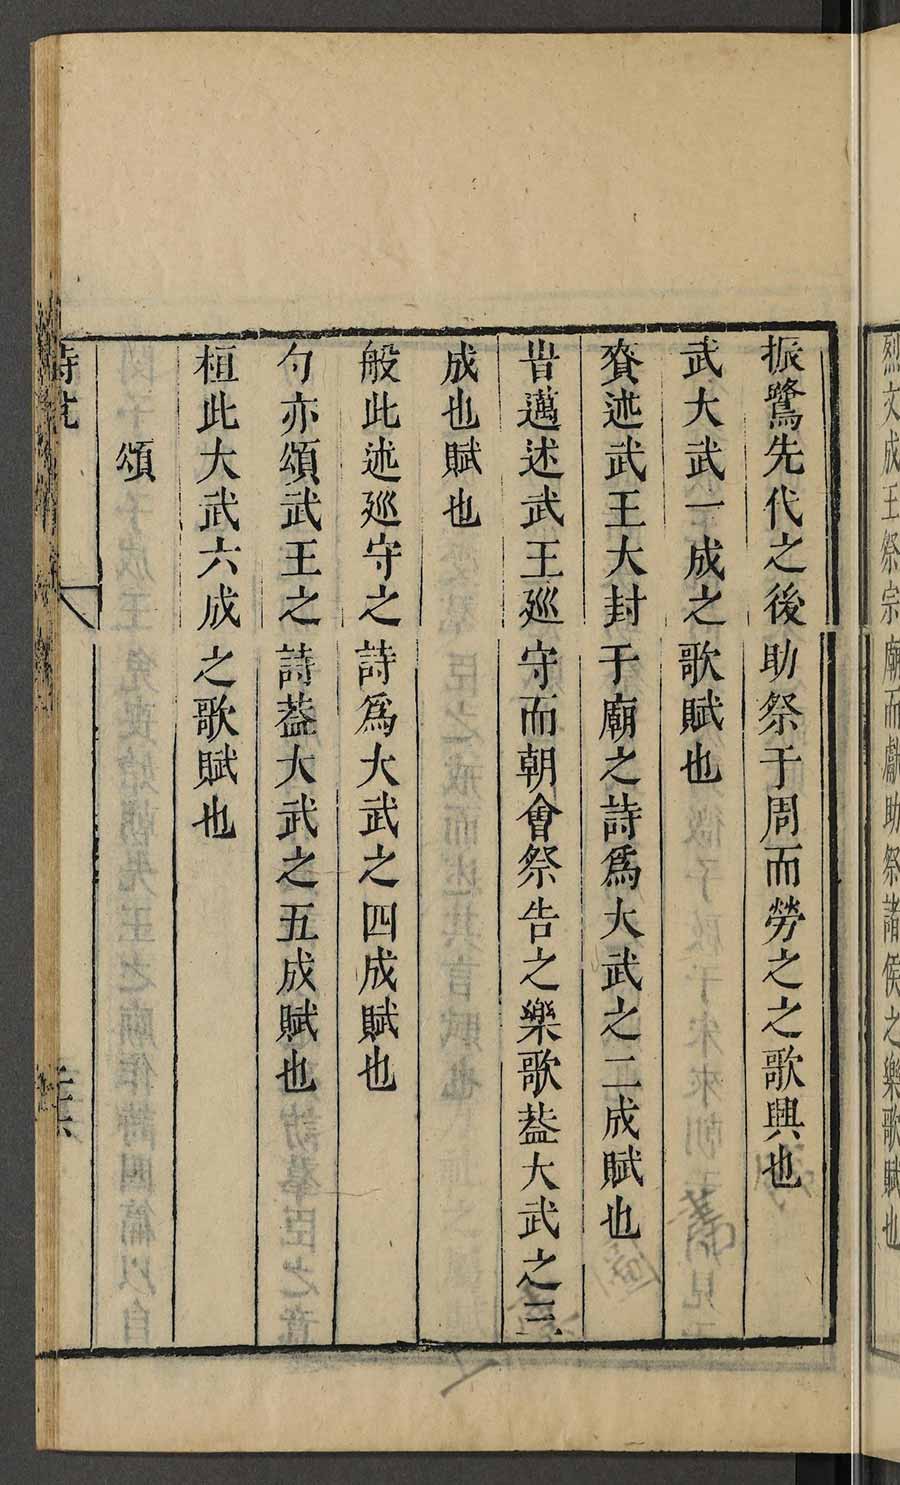 烈文成王祭宗廟而獻助祭諸侯之樂歌賦也
振鷺先代之後助祭于周而勞之之歌興也
武大武一成之歌賦也
賚述武王大封于廟之詩爲大武之二成賦也
旹邁述武王廵守而朝會祭告之樂歌葢大武之三
成也賦也
般此述廵守之詩爲大武之四成賦也
勺亦頌武王之詩葢大武之五成賦也
桓此大武六成之歌賦也
頌